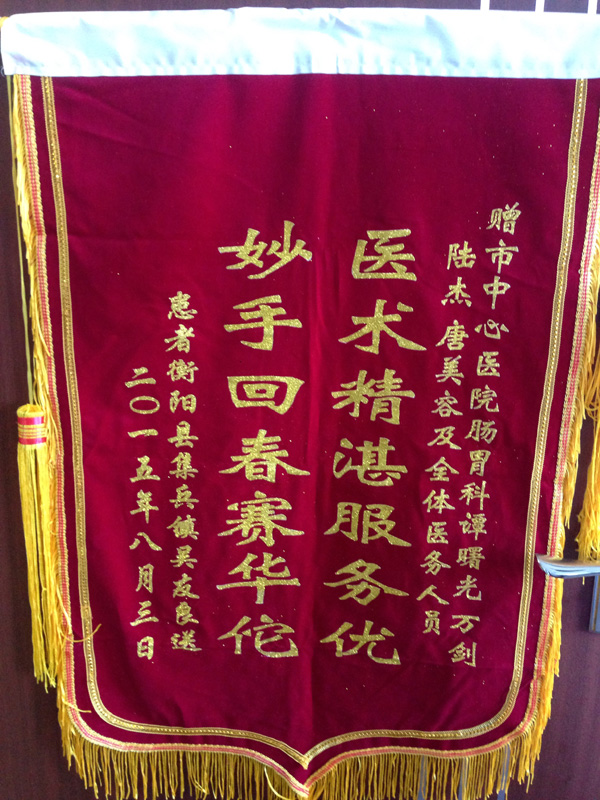 赠市中心医院肠胃科谭曙光 万剑
陆杰 唐美容及全体医务人员
医术精湛服务优
妙手回春赛华佗
患者衡阳县集兵镇吴友良送
二〇一五年八月三日